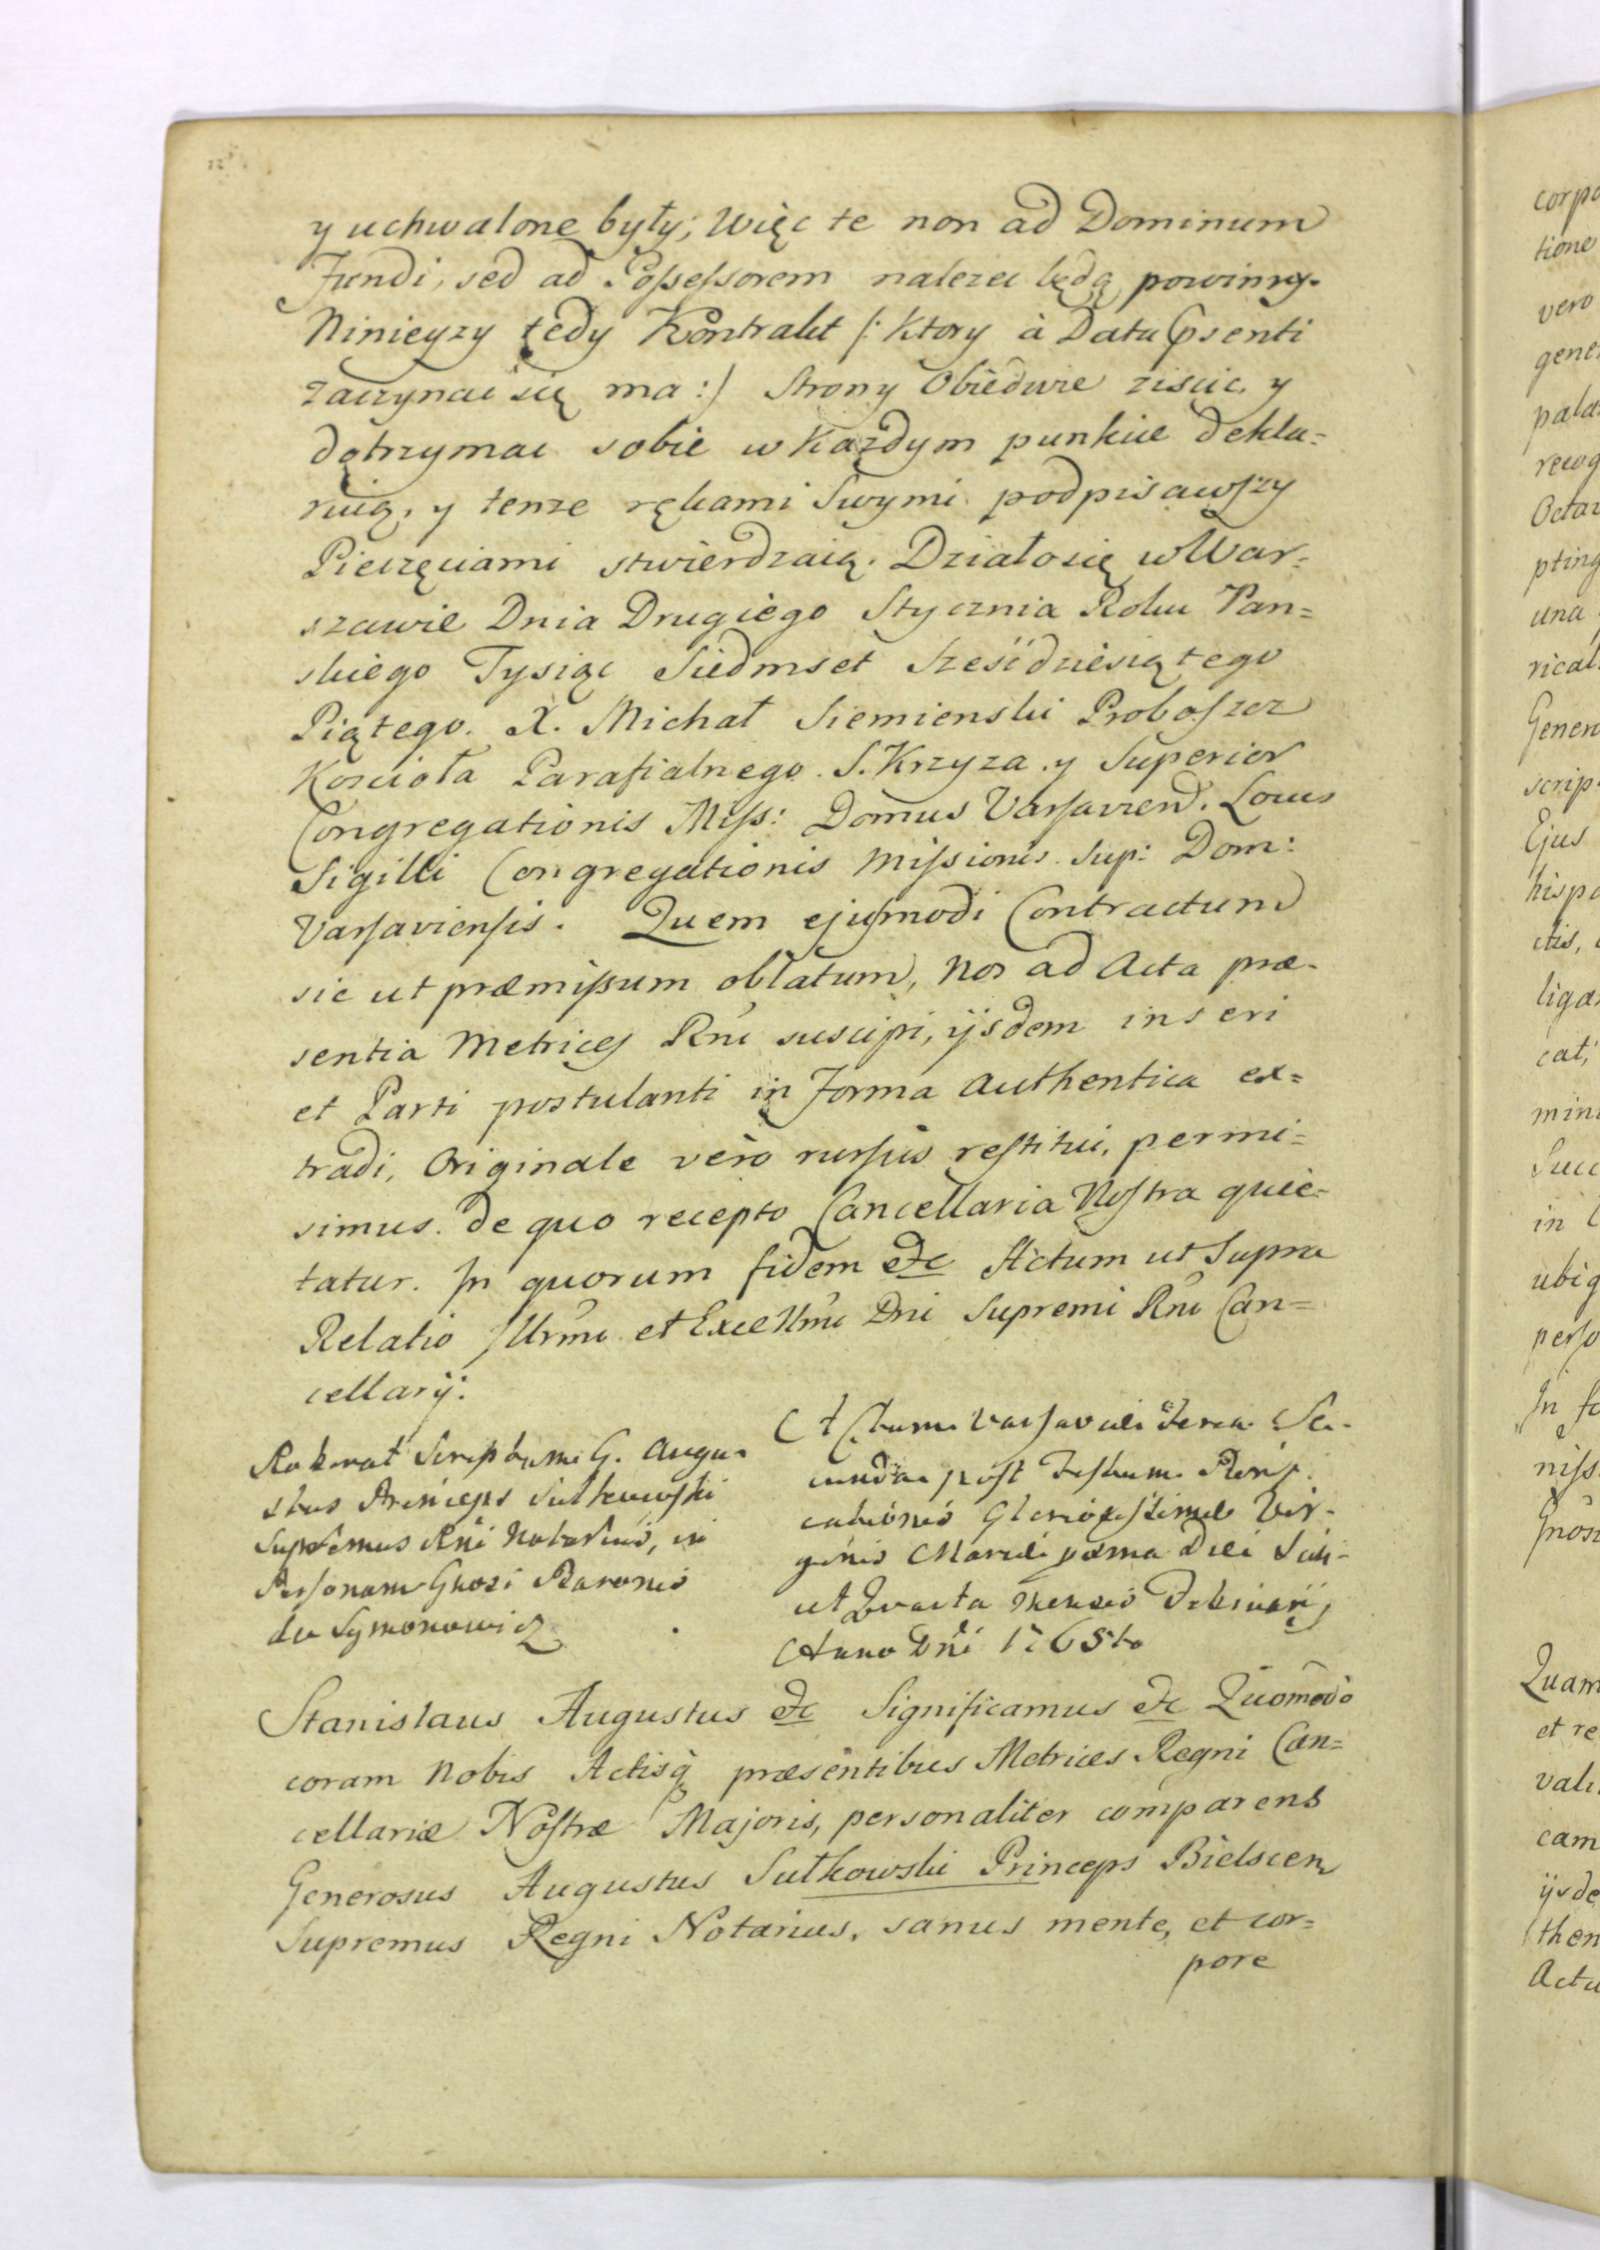 y uchwalone były; Więc te non ad Dominum
Fundi, sed ad Possessorem nalezec będą powinny.
Ninieyzy tedy Kontrakt /: Ktory à Datu psenti
zaczynać się ma :/ Strony Obiedwie ziscic y
dotrzymac sobie w Kazdym punkcie dekla=
ruią, y tenze rękami Swymi podpisawszy
Pieczęciami stwierdzaią. Działo się w War=
szawie Dnia Drugiego Stycznia Roku Pan=
skiego Tysiąc Siedmset Sześćdziesiątego
Piątego. X. Michał Siemienski Proboszcz
Koscioła Parafialnego S. Krzyza y Superior
Congregationis Miss: Domus Varsavien. Locus
Sigilli Congregationis Missionis Sup: Dom:
Varsaviensis. Quem ejusmodi Contractum
sic ut præmissum oblatum, Nos ad Acta præ-
sentia Metrices Rni suscipi, ijsdem inseri
et Parti postulanti in Forma Authentica ex=
tradi, Originale vero rursus restitui, permi=
simus. De quo recepto Cancellaria Nostra quie=
tatur. In quorum fidem &c Actum ut Supra
Relatio Illrmi et Excellmi Dni Supremi Rni Can=
cellarij.
Roborat Scriptum G. Augu-
stus Princeps Sułkowski
Supremus Rni Notarius, in
Personam Gnosi Baronis
de Symonowicz
Actum Varsaviæ Feria Se-
cunda post Festum Purifi-
cationis Gloriosissimæ Vir-
ginis Mariæ Dei Scili-
cet Quarta Mensis Februarij
Anno Dni 1765to
Stanislaus Augustus &c Significamus &c Quomodo
coram Nobis Actisq præsentibus Metrices Regni Can=
cellariæ Nostræ Majoris, personaliter comparens
Generosus Augustus Sułkowski Princeps Bielscen
Supremus Regni Notarius, sanus mente, et cor=
pore
corpo
tione
vero
gene
pala
recog
Octa
pting
una
rical
Gener
scrip
Ejus
hispa
ctis,
liga
cat,
mini
Succ
in
ubiq
perso
In
niss
Gnos
Quam
et re
vali
cam
ijsde
then
Actu